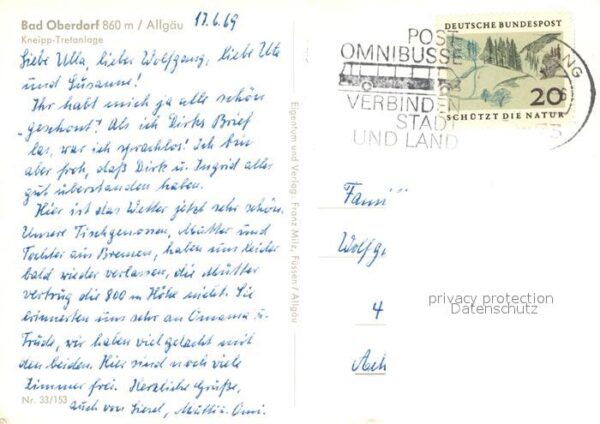 Bad Oberdorf 860 m / Allgäu
Kneipp-Tretanlage
17.6.69
Liebe Ulla, lieber Wolfgang, liebe Ute
und Susanne!
Ihr habt mich ja alle schön
"geschont"! Als ich Dirks Brief
las, war ich sprachlos! Ich bin
aber froh, daß Dirk u. Ingrid alles
gut überstanden haben.
Hier ist das Wetter jetzt sehr schön.
Unsere Tischgenossen, Mutter und
Tochter aus Bremen, haben uns leider
bald wieder verlassen, die Mutter
vertrug die 800 m Höhe nicht. Sie
erinnerten uns sehr an Omama u.
Trude, wir haben viel gelacht mit
den beiden. Hier sind noch viele
Zimmer frei. Herzliche Grüße,
auch von Liesel, Mutti u. Omi.
Nr. 33/153
Eigentum und Verlag: Franz Milz, Füssen / Allgäu
POST
OMNIBUSSE
VERBINDEN
STADT
UND LAND
DEUTSCHE BUNDESPOST
20
SCHÜTZT DIE NATUR
Fami
Wolfg
4
privacy protection
Datenschutz